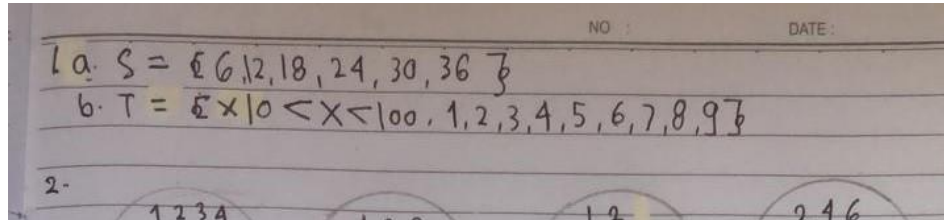 NO : DATE :
1 a. S = { 6,12,18, 24, 30, 36 }
b. T = { x 10 < x < 100. 1,2,3,4,5,6,7,8,9}
2-
1 2 3 4 1 2 2 4 6